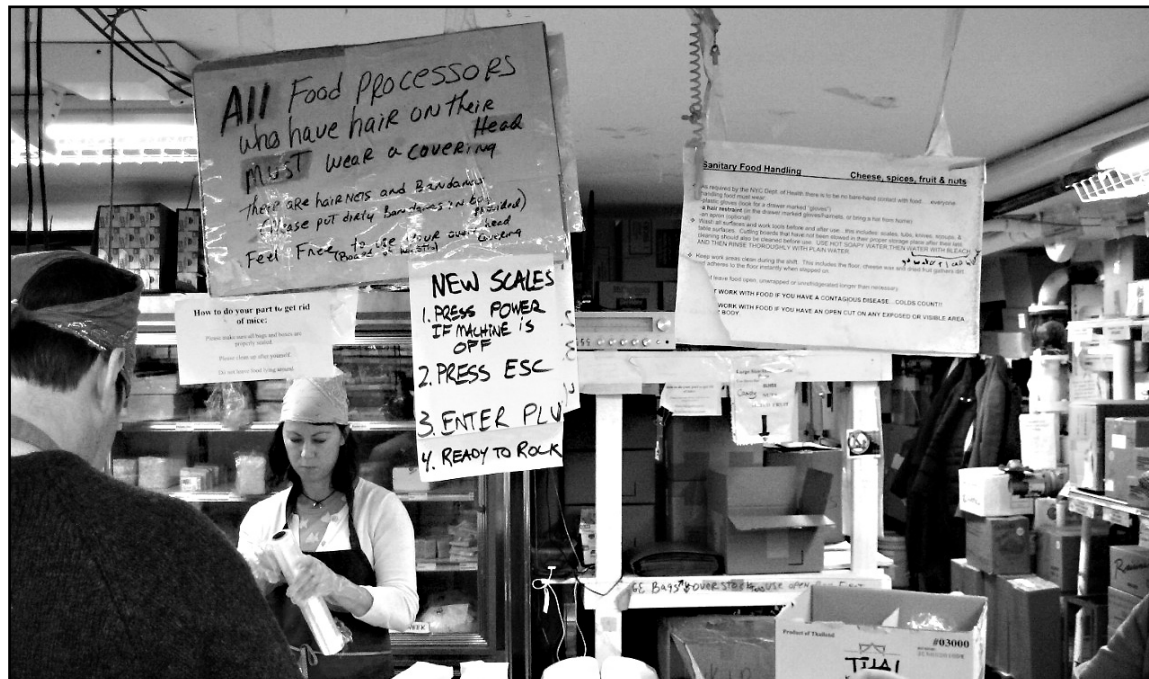 All Food PROCESSORS
who have hair on their
Head
MUST wear a covering
there are hairnets and Bandanas
(Please put dirty Bandanas in
provided)
Feel Free to use your own head
covering
NEW SCALES
1. PRESS POWER
IF MACHINE IS
OFF
2. PRESS ESC
3. ENTER PLU
4. READY TO ROCK
How to do your part to get rid
of mice:
Please make sure all bags and boxes are
properly sealed.
Please clean up after yourself.
Do not leave food lying around.
Sanitary Food Handling Cheese, spices, fruit & nuts
As required by the NYC Dept. of Health there is to be no bare-hand contact with food... everyone
handling food must wear:
-plastic gloves (look for a drawer marked "gloves")
-a hair restraint (in the drawer marked gloves/hairnets, or bring a hat from home)
-an apron (optional)
Wash all surfaces and work tools before and after use... this includes: scales, tubs, knives, scoops, &
table surfaces. Cutting boards that have not been stowed in their proper storage place after their last
cleaning should also be cleaned before use. USE HOT SOAPY WATER THEN WATER WITH BLEACH
AND THEN RINSE THOROUGHLY WITH PLAIN WATER.
Keep work areas clean during the shift. This includes the floor; cheese wax and dried fruit gathers dirt
and adheres to the floor instantly when stepped on.
leave food open, unwrapped or unrefrigerated longer than necessary.
WORK WITH FOOD IF YOU HAVE A CONTAGIOUS DISEASE... COLDS COUNT!!
WORK WITH FOOD IF YOU HAVE AN OPEN CUT ON ANY EXPOSED OR VISIBLE AREA
BODY
BAGS OVERSTOCK
Product of Thailand
#03000
THAI